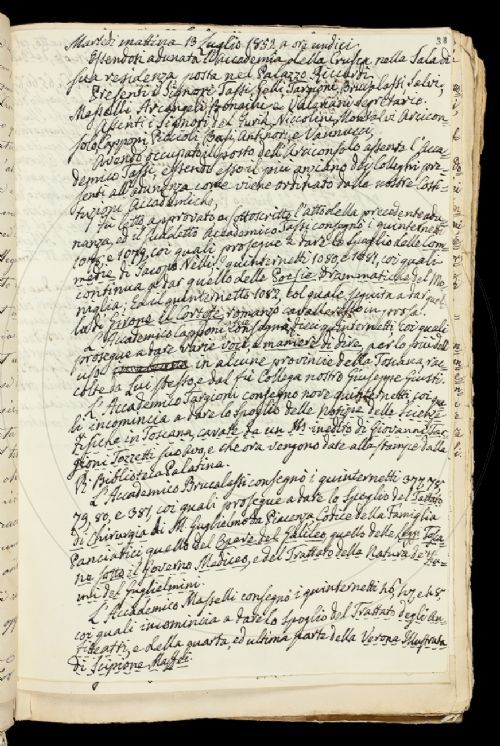 38
Martedì mattina 13 Luglio 1852 a ore undici
Essendosi adunata l'Accademia della Crusca nella Sala di
sua residenza posta nel Palazzo Riccardi.
Presenti i Signori Tassi, Gelli, Targioni, Brucalassi, Salvi,
Masselli, Arcangeli, Bonaini e Valeriani Segretario.
Assenti i Signori Del Furia, Niccolini, Montalvi Arcicon-
solo, Capponi, Puccioli, Basi, Antinori, e Vannucci,
Avendo occupato il posto dell'Arciconsolo assente l'Acca-
demico Tassi, essendo esso il più anziano dei Colleghi pre-
senti all'adunanza come viene ordinato dalle nostre Costi-
tuzioni Accademiche,
Fu letto, approvato e sottoscritto l'atto della precedente adu-
nanza, ed il suddetto Accademico Tassi consegnò i quinternetti
1078, e 1079, coi quali prosegue a dare lo spoglio delle Com
medie di Jacopo Nelli, i quinternetti 1080, e 1081, coi quali
continua a dar quello delle Poesie Drammatiche del Mo-
niglia; ed il quinternetto 1082, col quale seguita a dar quel
la di Girone il Cortese romanzo cavalleresco in prosa.
L'Accademico Capponi quinternetti coi quali
prosegue a dare varie voci, e maniere di dire, per lo più del
uso in alcune provincie della Toscana, rac
colte da lui stesso, e dal fu Collega nostro Giuseppe Giusti.
L'Accademico Targioni consegnò nove quinternetti, coi qua
li incomincia a dare lo spoglio delle Notizie delle Scienze
Fisiche in Toscana, cavate da un Ms inedito di Giovanni Tar
gioni Tozzetti suo avo, e che ora vengono date alla stampa dalla
R. Biblioteca Palatina.
L'Accademico Brucalassi consegnò i quinternetti 377, 78,
79, 80, e 381, coi quali prosegue a dare lo spoglio del Trattato
di Chirurgia di M. Guglielmo da Piacenza Codice della Famiglia
Panciatici quello del Saggiatore del Galileo quello delle Leggi Tosca
ne sotto il Governo Mediceo, e del Trattato della Natura de' Fiu-
mi del Guglielmini.
L'Accademico Masselli consegnò i quinternetti 46, 47, e 48
coi quali incomincia a dare lo spoglio del Trattato degli An
fiteatri, e della quarta, ed ultima parte della Verona Illustrata
di Scipione Maffei.